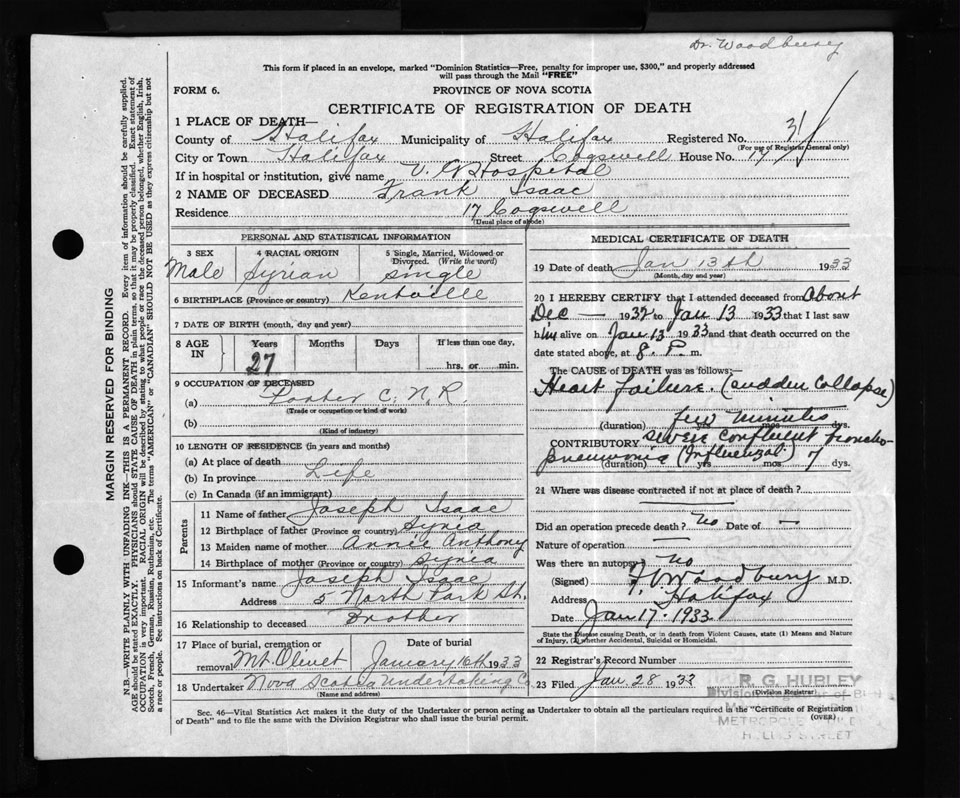 Dr. Woodbury
This form if placed in an envelope, marked "Dominion Statistics—Free, penalty for improper use, $300," and properly addressed
will pass through the Mail "FREE"
FORM 6.
PROVINCE OF NOVA SCOTIA
CERTIFICATE OF REGISTRATION OF DEATH
1 PLACE OF DEATH—
County of Halifax Municipality of Halifax Registered No. 31
(For use of Registrar General only)
City or Town Halifax Street Cogswell House No. 17
If in hospital or institution, give name V. G. Hospital
2 NAME OF DECEASED Frank Isaac
Residence 17 Cogswell
(Usual place of abode)
PERSONAL AND STATISTICAL INFORMATION
3 SEX Male
4 RACIAL ORIGIN Syrian
5 Single, Married, Widowed or Divorced. (Write the word) single
6 BIRTHPLACE (Province or country) Kentville
7 DATE OF BIRTH (month, day and year)
8 AGE IN Years 27 Months Days If less than one day, hrs. or min.
9 OCCUPATION OF DECEASED
(a) Porter C. N. R.
(Trade or occupation or kind of work)
(b)
(Kind of industry)
10 LENGTH OF RESIDENCE (in years and months)
(a) At place of death
(b) In province Life
(c) In Canada (if an immigrant)
Parents
11 Name of father Joseph Isaac
12 Birthplace of father (Province or country) Syria
13 Maiden name of mother Annie Anthony
14 Birthplace of mother (Province or country) Syria
15 Informant's name Joseph Isaac
Address 5 North Park St.
16 Relationship to deceased Brother
17 Place of burial, cremation or removal Mt. Olivet
Date of burial January 16th 1933
18 Undertaker Nova Scotia Undertaking Co
(Name and address)
MEDICAL CERTIFICATE OF DEATH
19 Date of death Jan 13th 1933
(Month, day and year)
20 I HEREBY CERTIFY that I attended deceased from About
Dec — 1932 to Jan 13 1933 that I last saw
him alive on Jan 13 1933 and that death occurred on the
date stated above, at 8. P. m.
The CAUSE OF DEATH was as follows:—
Heart failure. (sudden collapse)
few minutes
(duration) yrs mos dys.
CONTRIBUTORY severe confluent broncho-
pneumonia (Influenzal.)
(duration) yrs mos 7 dys.
21 Where was disease contracted if not at place of death?
Did an operation precede death? No Date of —
Nature of operation —
Was there an autopsy? no
(Signed) Woodbury M.D.
Address Halifax
Date Jan 17. 1933
State the Disease causing Death, or in death from Violent Causes, state (1) Means and Nature
of Injury, (2) whether Accidental, Suicidal or Homicidal.
22 Registrar's Record Number
23 Filed Jan. 28 1933
(Division Registrar)
R. G. HURLEY
Sec. 46—Vital Statistics Act makes it the duty of the Undertaker or person acting as Undertaker to obtain all the particulars required in the "Certificate of Registration
of Death" and to file the same with the Division Registrar who shall issue the burial permit.
(OVER)
MARGIN RESERVED FOR BINDING
N.B.—WRITE PLAINLY WITH UNFADING INK—THIS IS A PERMANENT RECORD. Every item of information should be carefully supplied.
AGE should be stated EXACTLY. PHYSICIANS should STATE CAUSE OF DEATH in plain terms, so that it may be properly classified. Exact statement of
OCCUPATION is very important. RACIAL ORIGIN will be described by stating to what people or race the deceased person belonged, whether English, Irish,
Scotch, French, German, Russian, Ruthenian, etc. The terms "AMERICAN" or "CANADIAN" SHOULD NOT BE USED as they express citizenship but not
a race or people. See instructions on back of Certificate.